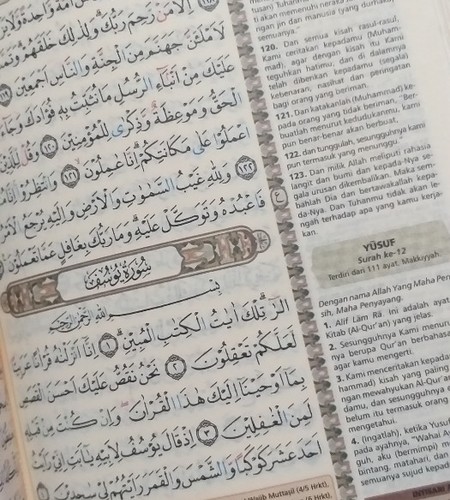 اُمَّةً وَّاحِدَةً
اِلَّا مَنْ رَّحِمَ رَبُّكَ ۗوَلِذٰلِكَ خَلَقَهُمْ ۗ
لَاَمْلَـَٔنَّ جَهَنَّمَ مِنَ الْجِنَّةِ وَالنَّاسِ اَجْمَعِيْنَ ١١٩
عَلَيْكَ مِنْ اَنْۢبَاۤءِ الرُّسُلِ مَا نُثَبِّتُ بِهٖ فُؤَادَكَ وَجَاۤءَ
الْحَقُّ وَمَوْعِظَةٌ وَّذِكْرٰى لِلْمُؤْمِنِيْنَ ١٢٠ وَقُلْ لِّلَّذِيْنَ
اعْمَلُوْا عَلٰى مَكَانَتِكُمْۗ اِنَّا عٰمِلُوْنَ ١٢١ وَانْتَظِرُوْاۚ اِنَّا
١٢٢ وَلِلّٰهِ غَيْبُ السَّمٰوٰتِ وَالْاَرْضِ وَاِلَيْهِ يُرْجَعُ الْاَمْرُ
فَاعْبُدْهُ وَتَوَكَّلْ عَلَيْهِۗ وَمَا رَبُّكَ بِغَافِلٍ عَمَّا تَعْمَلُوْنَ
سُوْرَةُ يُوْسُفَ
بِسْمِ اللّٰهِ الرَّحْمٰنِ الرَّحِيْمِ
الۤرٰ ۗ تِلْكَ اٰيٰتُ الْكِتٰبِ الْمُبِيْنِ ۗ ١ اِنَّآ اَنْزَلْنٰهُ قُرْاٰنًا عَرَبِيًّا
لَّعَلَّكُمْ تَعْقِلُوْنَ ٢ نَحْنُ نَقُصُّ عَلَيْكَ اَحْسَنَ الْقَصَصِ
بِمَآ اَوْحَيْنَآ اِلَيْكَ هٰذَا الْقُرْاٰنَۖ وَاِنْ كُنْتَ مِنْ قَبْلِهٖ
لَمِنَ الْغٰفِلِيْنَ ٣ اِذْ قَالَ يُوْسُفُ لِاَبِيْهِ يٰٓاَبَتِ اِنِّيْ رَاَيْتُ
اَحَدَ عَشَرَ كَوْكَبًا وَّالشَّمْسَ وَالْقَمَرَ رَاَيْتُهُمْ لِيْ سٰجِدِيْنَ
ati) Tuhanmu
ngan jin dan manusia (yang durhaka)
semuanya."
120. Dan semua kisah rasul-rasul,
Kami ceritakan kepadamu (Muham-
mad), agar dengan kisah itu Kami
teguhkan hatimu; dan di dalamnya
telah diberikan kepadamu (segala)
kebenaran, nasihat dan peringatan
bagi orang yang beriman.
121. Dan katakanlah (Muhammad) ke-
pada orang yang tidak beriman, "Ber-
buatlah menurut kedudukanmu, kami
pun benar-benar akan berbuat,
122. dan tunggulah, sesungguhnya kami
pun termasuk yang menunggu."
123. Dan milik Allah meliputi rahasia
langit dan bumi dan kepada-Nya se-
gala urusan dikembalikan. Maka sem-
bahlah Dia dan bertawakallah kepa-
da-Nya. Dan Tuhanmu tidak akan le-
ngah terhadap apa yang kamu kerja-
kan.
YŪSUF
Surah ke-12
Terdiri dari 111 ayat. Makkiyyah.
Dengan nama Allah Yang Maha Penga-
sih, Maha Penyayang.
1. Alif Lām Rā. Ini adalah ayat
Kitab (Al-Qur'an) yang jelas.
2. Sesungguhnya Kami menurun
nya berupa Qur'an berbahasa
agar kamu mengerti.
3. Kami menceritakan kepadamu
hammad) kisah yang paling
ngan mewahyukan Al-Qur'an
damu, dan sesungguhnya
belum itu termasuk orang
mengetahui.
4. (Ingatlah), ketika Yusuf
pada ayahnya, "Wahai Ay
guh, aku (bermimpi) me
bintang, matahari, dan
semuanya sujud kepad
Wajib Muttaṣil (4/5 Hrkt),